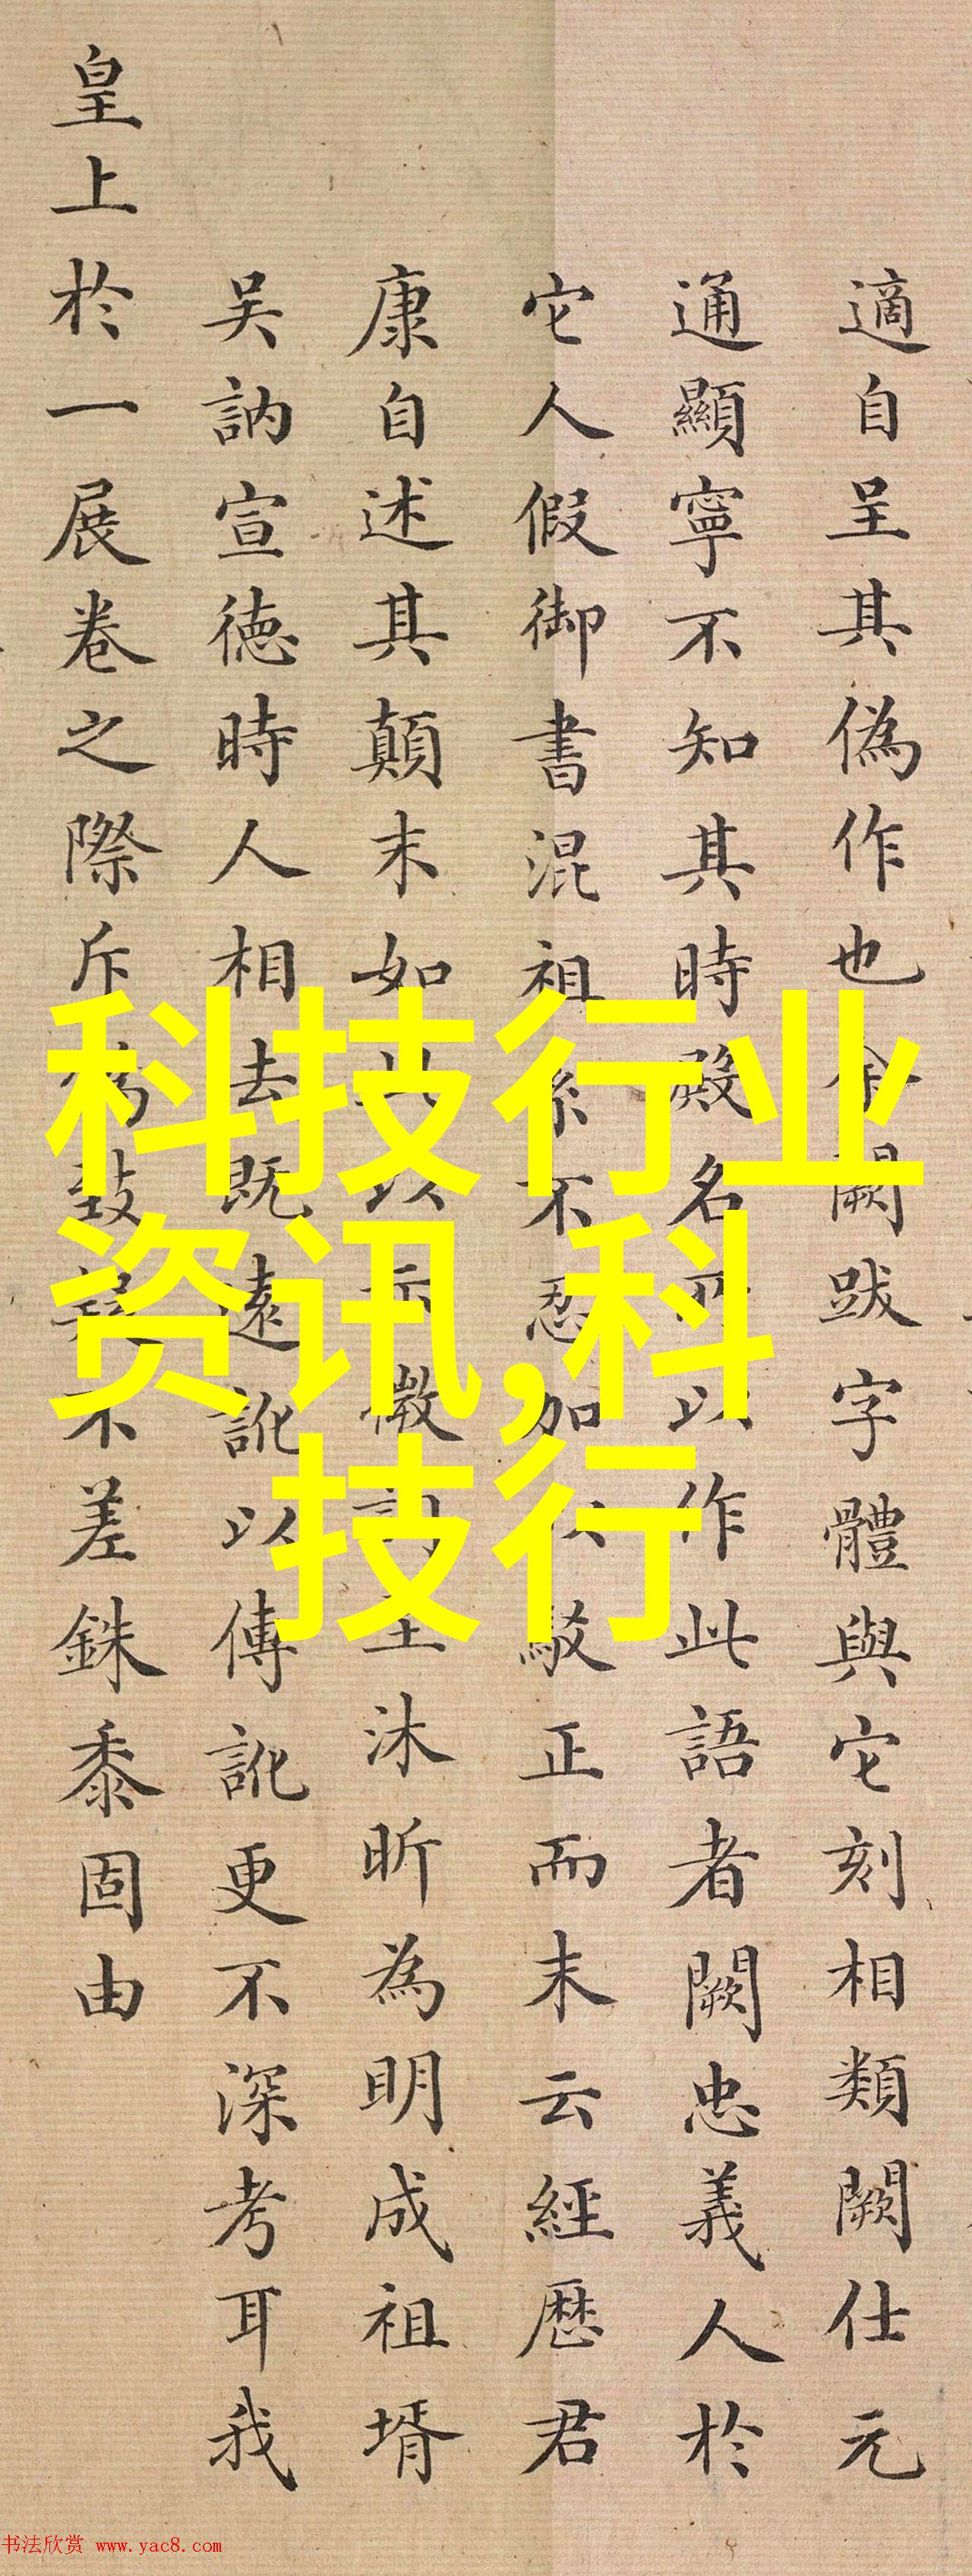 適自呈其偽作也余闕跋字體與它刻相類闕仕元
通顯寧不知其時殿名所以作此語者闕忠義人於
它人假御書混祖系不忍加以駁正而末云經歷君
康自述其顛末如此以示徵討王沐昕為明成祖壻
吴訥宣徳時人相去既遠訛以傳訛更不深考耳我
皇上於一展卷之際斥為致疑不差銖黍固由
科技行业
资讯,科
技行
书法欣赏 www.yac8.com